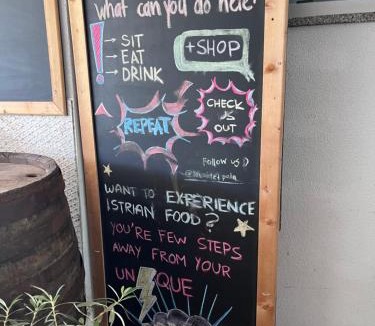 What can you do here?
→ SIT
→ EAT
→ DRINK
+SHOP
REPEAT
CHECK
US
OUT
Follow us :)
WANT TO EXPERIENCE
ISTRIAN FOOD?
YOU'RE FEW STEPS
AWAY FROM YOUR
UNIQUE